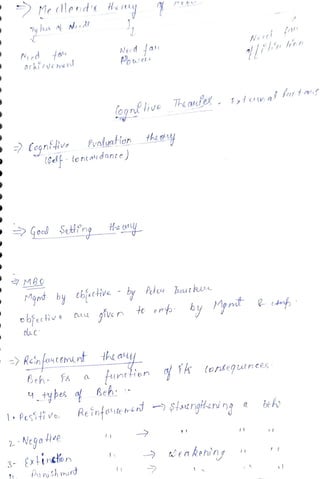 => McClleland's theory of
Types of Needs
Need for achievement
Need for Power
Need for affiliation
Cognitive Theories - External factors
=> Cognitive Evaluation theory
(Self-Concordance)
=> Goal Setting theory
=> MBO
Mgmt by objective - by Peter
objective are given to emp. by Mgmt &
=> Reinforcement theory
Beh. is a function of its consequences
4 types of Beh :-
1. Positive Reinforcement → Strengthening a beh
2. Negative " → " "
3- Extinction " → weakening " "
Punishment " → " "